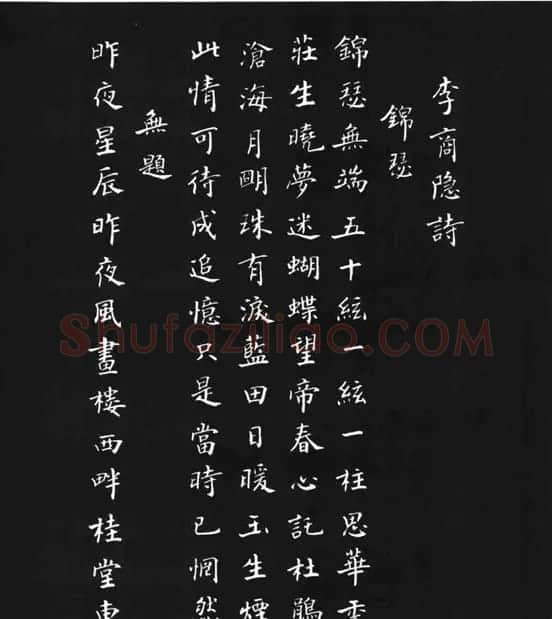 李商隐詩
錦瑟
錦瑟無端五十絃一絃一柱思華年
莊生曉夢迷蝴蝶望帝春心託杜鵑
滄海月朙珠有淚藍田日暖玉生煙
此情可待成追憶只是當時已惘然
無題
昨夜星辰昨夜風畫楼西畔桂堂東
Shufaziliao.COM